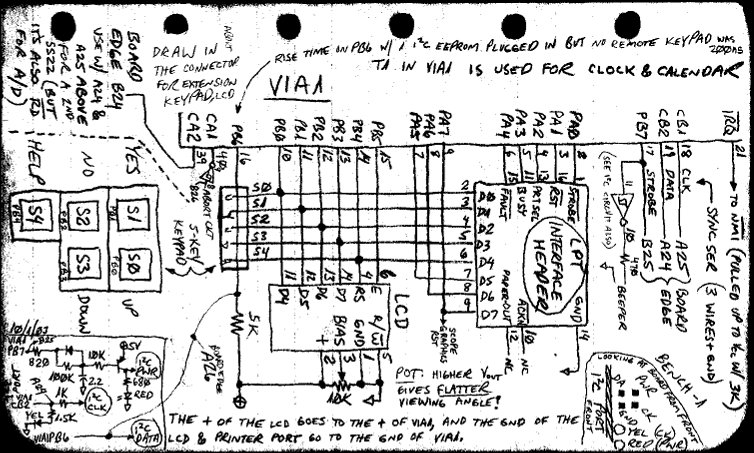 RISE TIME ON PB6 W/ 1 I²C EEPROM PLUGGED IN BUT NO REMOTE KEYPAD WAS
T1 IN VIA1 IS USED FOR CLOCK & CALENDAR
VIA1
DRAW IN
THE CONNECTOR
FOR EXTENSION
KEYPAD, LCD
BOARD
EDGE B24
USE W/ A24 &
A25 ABOVE
FOR A 2ND
SS22 (BUT
IT'S ALSO RD
FOR A/D)
CA2 CA1 PB6 PB0 PB1 PB2 PB3 PB4 PB5 PA5 PA6 PA7 PA4 PA3 PA2 PA1 PA0 PB7 CB2 CB1 IRQ
39 40 16 10 11 12 13 14 15 7 8 9 6 5 4 3 2 17 19 18 21
HELP
NO
YES
S4
S2
S1
S3
S0
DOWN
UP
5-KEY
KEYPAD
S0
S1
S2
S3
S4
D0
D1
D2
D3
D4
D5
D6
D7
FAULT
BUSY
PRTSEL
RST
STROBE
LPT
INTERFACE
HEADER
PAPER OUT
ACKN
GND
12 10 14
NC NC
SCOPE
GRAPHICS
RST
D4 D5 D6 D7 RS E
11 12 13 14 4 6
+ BIAS GND R/W
2 3 1 5
LCD
5K
10K
BOARD EDGE
A26
(SEE I²C CIRCUIT ALSO)
11
10
470
BEEPER
STROBE B25
DATA A24
CLK A25
BOARD
EDGE
SYNC SER (3 WIRES + GND)
TO NMI (PULLED UP TO Vcc W/ 3K)
POT: HIGHER Vout
GIVES FLATTER
VIEWING ANGLE?
10/1/03
VIA1
PB7
820
10K
5V
I²C
PWR
100K
2.2
680
RED
1K
I²C
CLK
YEL
1.5K
VIA1PB6
I²C
DATA
THE + OF THE LCD GOES TO THE + OF VIA1, AND THE GND OF THE
LCD & PRINTER PORT GO TO THE GND OF VIA1.
BENCH-1
LOOKING AT BOARD FROM FRONT
I²C PORT
FRONT
DA
PWR
GND
CK
YEL
RED (PWR)